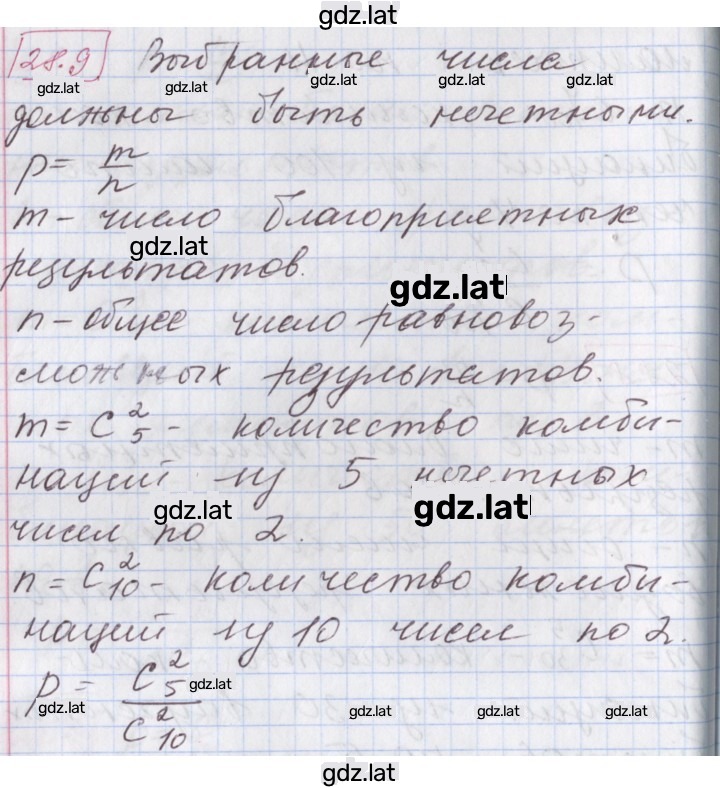 gdz.lat
28.9 Выбранные числа
gdz.lat gdz.lat gdz.lat gdz.lat
должны быть нечетными.
p = m/n
m - число благоприятных
gdz.lat
результатов.
gdz.lat
n - общее число равновоз-
можных результатов.
m = C₅² - количество комби-
наций из 5 нечетных
gdz.lat gdz.lat
чисел по 2.
n = C₁₀² - количество комби-
наций из 10 чисел по 2.
p = C₅²/C₁₀²
gdz.lat gdz.lat gdz.lat gdz.lat gdz.lat
gdz.lat